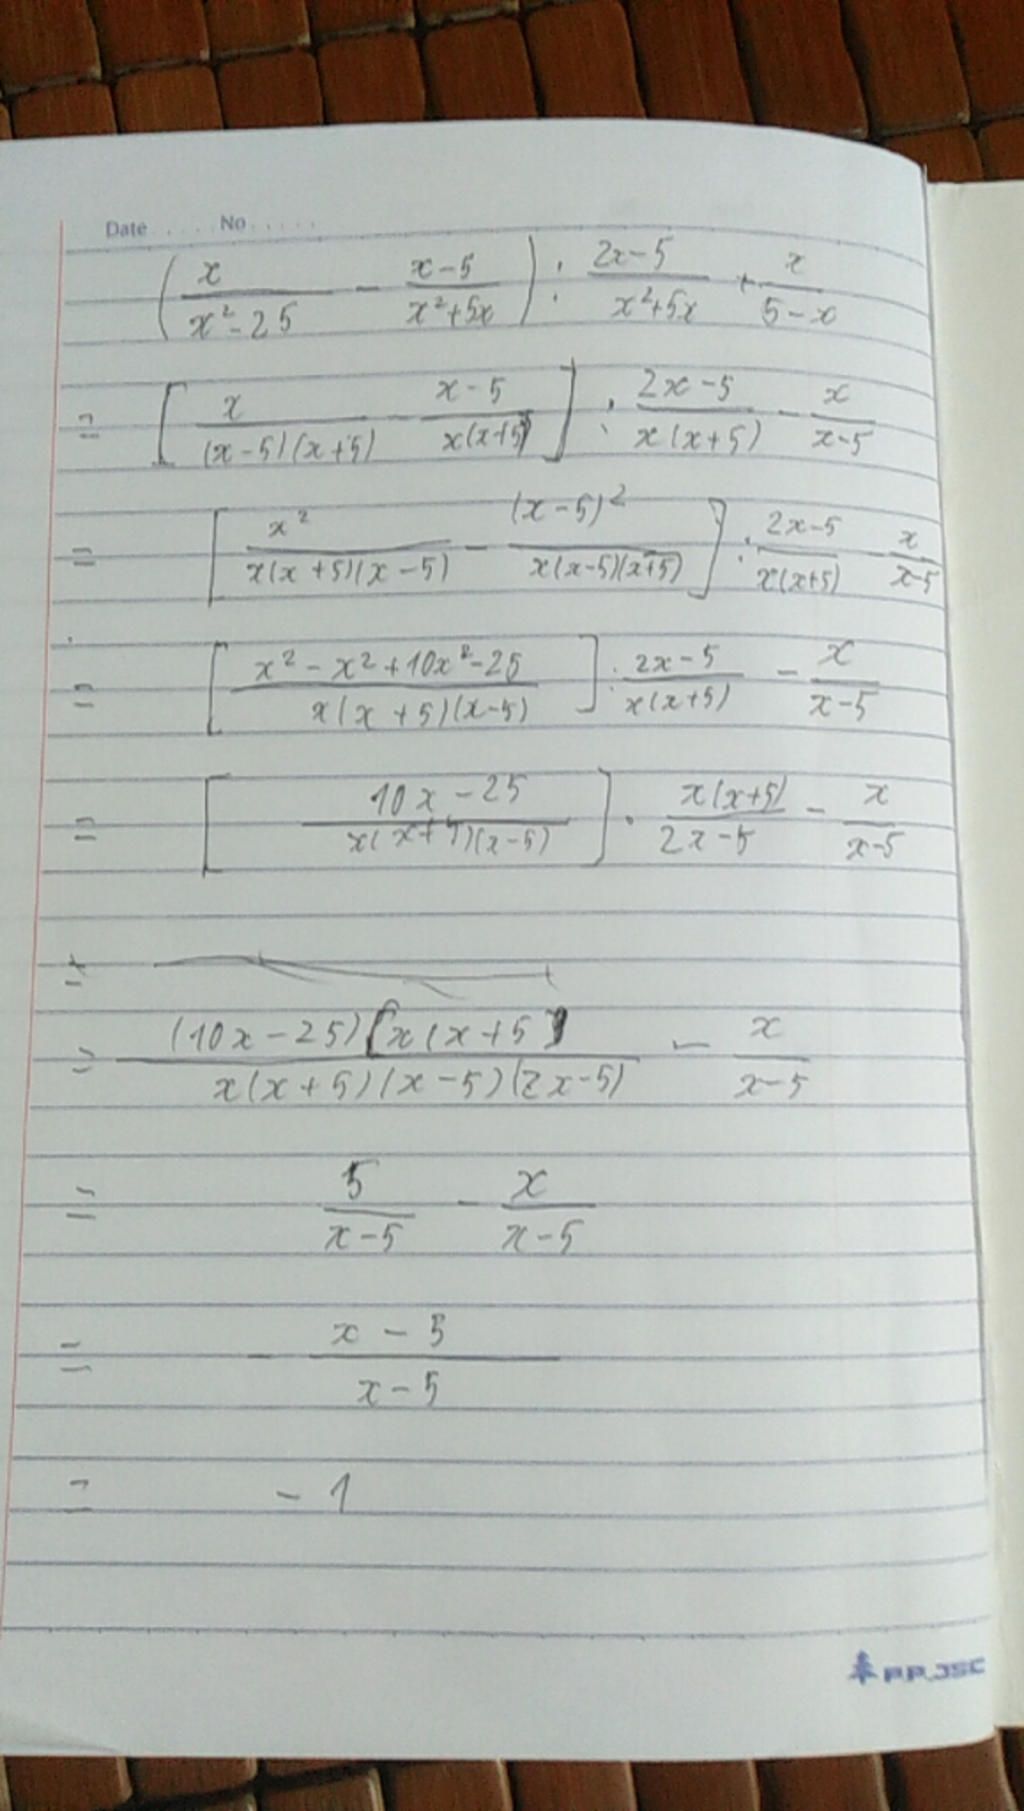 Date ..... No .....
(x/(x²-25) - (x-5)/(x²+5x)) : (2x-5)/(x²+5x) + x/(5-x)
= [x/((x-5)(x+5)) - (x-5)/(x(x+5))] : (2x-5)/(x(x+5)) - x/(x-5)
= [x²/(x(x+5)(x-5)) - (x-5)²/(x(x-5)(x+5))] : (2x-5)/(x(x+5)) - x/(x-5)
= [(x²-x²+10x-25)/(x(x+5)(x-5))] : (2x-5)/(x(x+5)) - x/(x-5)
= [(10x-25)/(x(x+5)(x-5))] . x(x+5)/(2x-5) - x/(x-5)
=
= (10x-25)[x(x+5)]/(x(x+5)(x-5)(2x-5)) - x/(x-5)
= 5/(x-5) - x/(x-5)
= - (x-5)/(x-5)
= -1
P.P.JSC